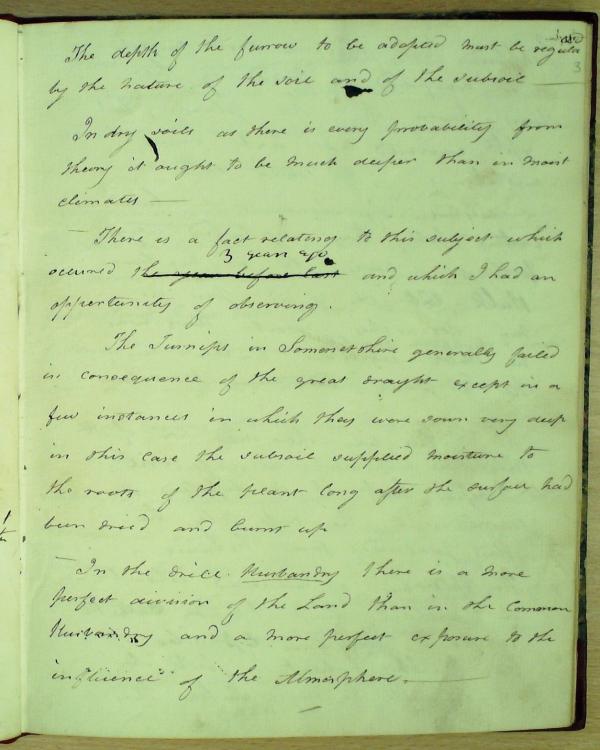 The depth of the furrow to be adopted must be regulated
3
by the nature of the soil and of the subsoil —
In dry soils as there is every probability from
theory it ought to be much deeper than in moist
climates —
— There is a fact relating to this subject which
3 years ago
occured the year before last and which I had an
opportunity of observing.
The Turnips in Somersetshire generally failed
in consequence of the great draught except in a
few instances in which they were sown very deep
in this case the subsoil supplied moisture to
the roots of the plant long after the surface had
been dried and burnt up
— In the drill Husbandry there is a more
perfect division of the Land than in the Common
Husbandry and a more perfect exposure to the
influence of the Atmosphere. —